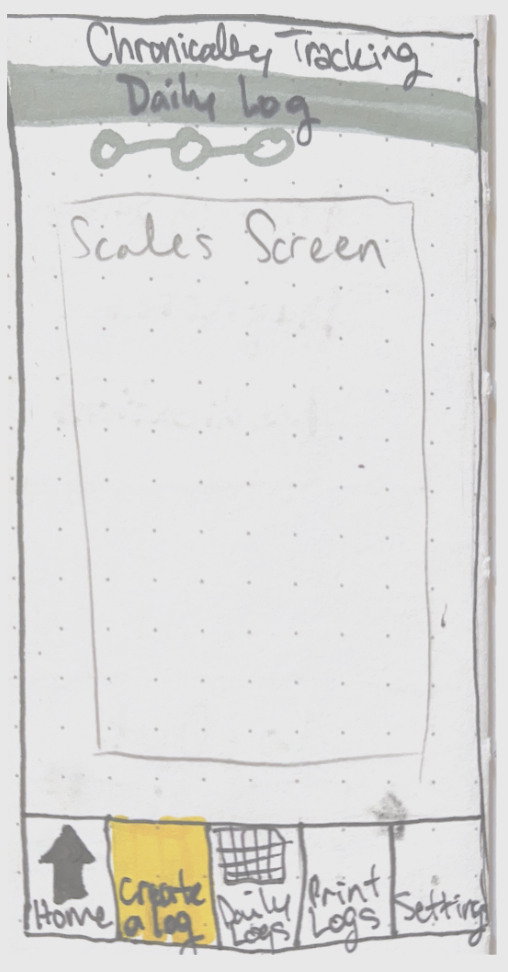 Chronically Tracking
Daily Log
Scales Screen
Home
Create
a log
Daily
Logs
Print
Logs
Setting